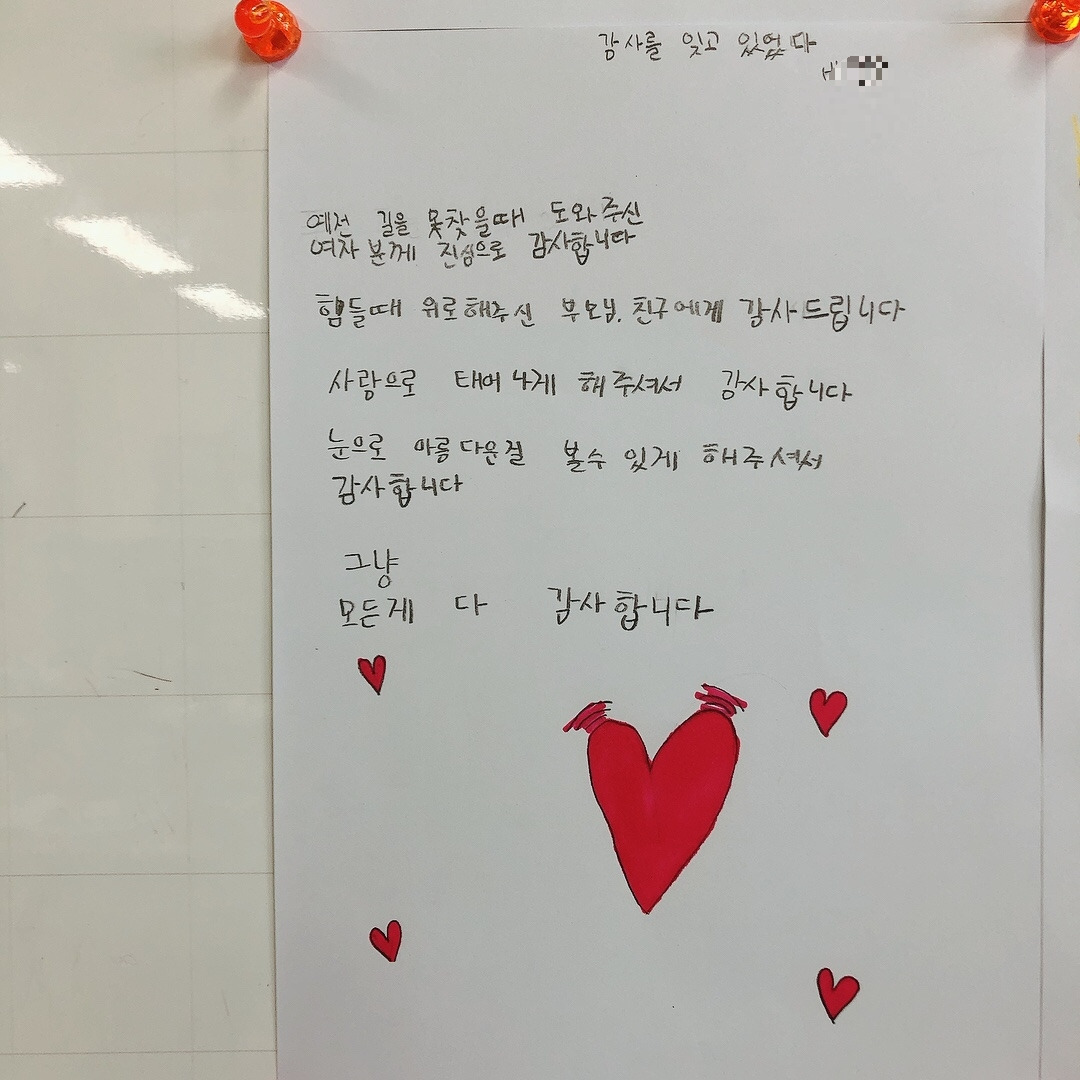 감사를 잊고 있었다
예전 길을 못찾을때 도와주신
여자분께 진심으로 감사합니다
힘들때 위로해주신 부모님, 친구에게 감사드립니다
사랑으로 태어나게 해주셔서 감사합니다
눈으로 아름다운걸 볼수 있게 해주셔서
감사합니다
그냥
모든게 다 감사합니다